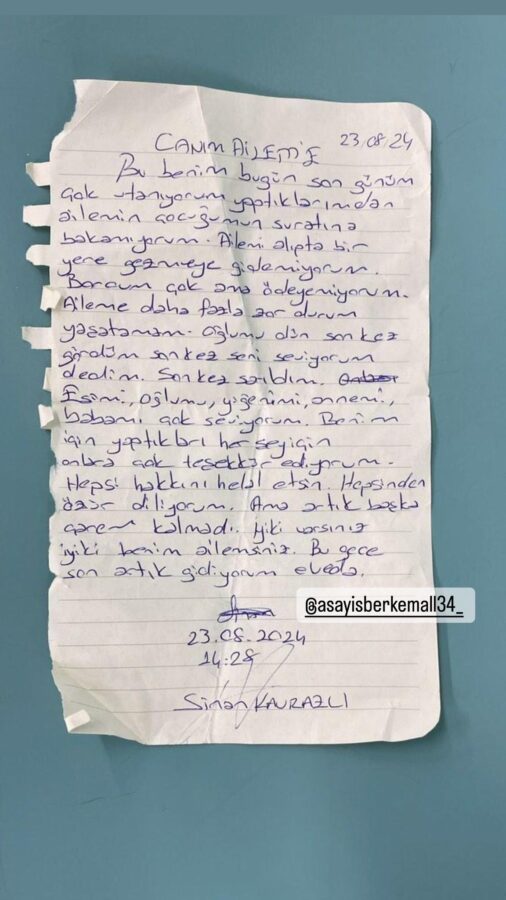 CANIM AİLEM'E 23.08.24
Bu benim bugün son günüm
çok utanıyorum yaptıklarımdan
ailemin çocuğumun suratına
bakamıyorum. Ailemi alıpta bir
yere gezmeye gidemiyorum.
Borcum çok ama ödeyemiyorum.
Aileme daha fazla zor durum
yaşatamam. Oğlumu dün son kez
gördüm son kez seni seviyorum
dedim. Son kez sarıldım.
Eşimi, oğlumu, yiğenimi, annemi,
babamı çok seviyorum. Benim
için yaptıkları her şey için
onlara çok teşekkür ediyorum.
Hepsi hakkını helal etsin. Hepsinden
özür diliyorum. Ama artık başka
çarem kalmadı. iyiki varsınız
iyiki benim ailemsiniz. Bu gece
son artık gidiyorum elveda.
@asayisberkemall34_
23.08.2024
14:28
Sinan KAVRAZLI